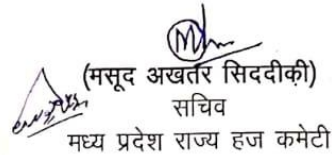 (मसूद अखतर सिददीक़ी)
सचिव
मध्य प्रदेश राज्य हज कमेटी